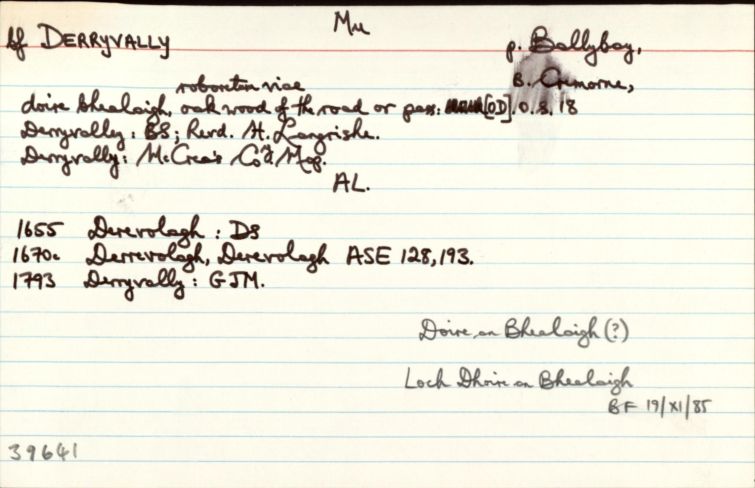 Mu
bf DERRYVALLY
p. Ballybay,
b. Cremorne,
roboretum viae
doire bhealaigh, oak wood of the road or pass. [OD]. O.S. 18
Derryvally : BS; Revd. H. Langrishe.
Derryvally : McCrea's Co. Map.
AL.
1655 Derevolagh : DS
1670c Derrevolagh, Derevolagh ASE 128, 193.
1793 Derryvally : GJM.
Doire an Bhealaigh (?)
Loch Dhoire an Bhealaigh
BF 19/XI/85
39641